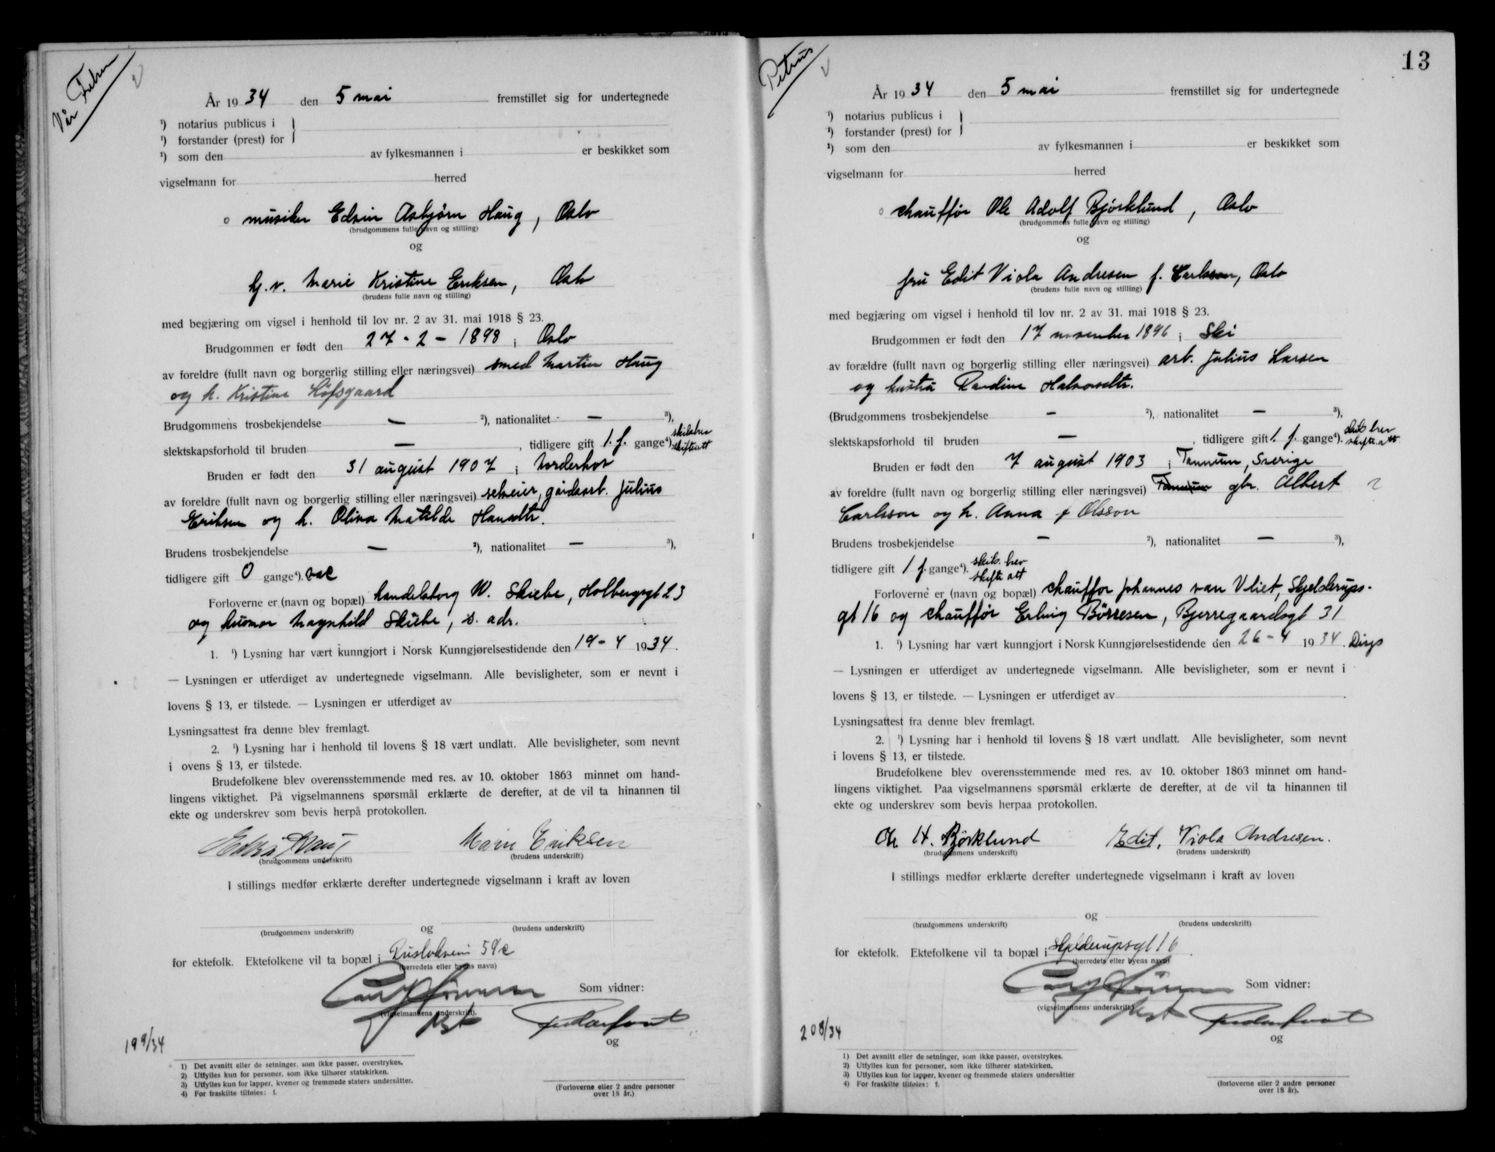 Vår Frelser
År 1934 den 5 mai fremstillet sig for undertegnede
¹) notarius publicus i
¹) forstander (prest) for
¹) som den av fylkesmannen i er beskikket som
vigselmann for herred
musiker Edvin Asbjørn Haug, Oslo
(brudgommens fulle navn og stilling)
og
hj.v. Marie Kristine Eriksen, Oslo
(brudens fulle navn og stilling)
med begjæring om vigsel i henhold til lov nr. 2 av 31. mai 1918 § 23.
Brudgommen er født den 27-2-1898 i Oslo
av foreldre (fullt navn og borgerlig stilling eller næringsvei) smed Martin Haug
og h. Kristine
Brudgommens trosbekjendelse — ²), nationalitet — ³),
slektskapsforhold til bruden — , tidligere gift 1. f. gange⁴). skilsbrev
skifteatt
Bruden er født den 31 august 1907 i Norderhov
av foreldre (fullt navn og borgerlig stilling eller næringsvei) selveier, gårdsarb. Julius
Eriksen og h. Oliva Matilde Hansdtr.
Brudens trosbekjendelse — ²), nationalitet — ³),
tidligere gift 0 gange⁴). vac
Forloverne er (navn og bopæl) W. Skiebe, Holbergsgt 23
og hustru Magnhild Skiebe, s. adr.
1. ¹) Lysning har vært kunngjort i Norsk Kunngjørelsestidende den 19-4 1934.
— Lysningen er utferdiget av undertegnede vigselmann. Alle bevisligheter, som er nevnt i
lovens § 13, er tilstede. — Lysningen er utferdiget av
Lysningsattest fra denne blev fremlagt.
2. ¹) Lysning har i henhold til lovens § 18 vært undlatt. Alle bevisligheter, som nevnt
i ovens § 13, er tilstede.
Brudefolkene blev overensstemmende med res. av 10. oktober 1863 minnet om hand-
lingens viktighet. På vigselmannens spørsmål erklærte de derefter, at de vil ta hinannen til
ekte og underskrev som bevis herpå protokollen.
Edvin Haug Marie Eriksen
(brudgommens underskrift) (brudens underskrift)
I stillings medfør erklærte derefter undertegnede vigselmann i kraft av loven
og
(brudgommens underskrift) (brudens underskrift)
for ektefolk. Ektefolkene vil ta bopæl i 59c
(herredets eller byens navn)
Som vidner:
(vigselmannens underskrift).
og
199/34
1) Det avsnitt eller de setninger, som ikke passer, overstrykes.
2) Utfylles kun for personer, som ikke tilhører statskirken.
3) Utfylles kun for lapper, kvener og fremmede staters undersåtter.
4) For fraskilte tilføies: f.
(Forloverne eller 2 andre personer
over 18 år.)
13
Petrus
År 1934 den 5 mai fremstillet sig for undertegnede
¹) notarius publicus i
¹) forstander (prest) for
¹) som den av fylkesmannen i er beskikket som
vigselmann for herred
chauffør Ole Adolf Bjørklund, Oslo
(brudgommens fulle navn og stilling)
og
fru Edit Viola Andresen f. Carlsson, Oslo
(brudens fulle navn og stilling)
med begjæring om vigsel i henhold til lov nr. 2 av 31. mai 1918 § 23.
Brudgommen er født den 17 november 1896 i Ski
av forældre (fullt navn og borgerlig stilling eller næringsvei) arb. Julius Larsen
og hustru Randine Halvorsdtr.
(Brudgommens trosbekjendelse — ²), nationalitet — ³),
slektskapsforhold til bruden — , tidligere gift 1. f. gange⁴). skilsbrev
skifteatt
Bruden er født den 7 august 1903 i Tannum, Sverige
av foreldre (fullt navn og borgerlig stilling eller næringsvei) Tannum gbr. Albert
Carlsson og h. Anna f Olsson
Brudens trosbekjendelse — ²), nationalitet — ³),
tidligere gift 1 f. gange⁴). skils. brev
skifte att
Forloverne er (navn og bopæl) chauffør Johannes van Vliet, Skjelderups-
gt 16 og chauffør Erling Børresen, Bjerregaardsgt 31
1. ¹) Lysning har vært kunngjort i Norsk Kunngjørelsestidende den 26-4 1934.
— Lysningen er utferdiget av undertegnede vigselmann. Alle bevisligheter, som er nevnt i
lovens § 13, er tilstede. — Lysningen er utferdiget av
Lysningsattest fra denne blev fremlagt.
2. ¹) Lysning har i henhold til lovens § 18 vært undlatt. Alle bevisligheter, som nevnt
i lovens § 13, er tilstede.
Brudefolkene blev overensstemmende med res. av 10. oktober 1863 minnet om hand-
lingens viktighet. Paa vigselmannens spørsmål erklærte de derefter, at de vil ta hinannen til
ekte og underskrev som bevis herpaa protokollen.
Ole A. Bjørklund Edit, Viola Andresen.
(brudgommens underskrift) (brudens underskrift)
I stillings medfør erklærte derefter undertegnede vigselmann i kraft av loven
og
(brudgommens underskrift) (brudens underskrift)
for ektefolk. Ektefolkene vil ta bopæl i Skjelderupsgt 16
(herredets eller byens navn)
Som vidner:
(vigselmannens underskrift).
og
208/34
1) Det avsnitt eller de setninger, som ikke passer, overstrykes.
2) Utfylles kun for personer, som ikke tilhører statskirken.
3) Utfylles kun for lapper, kvener og fremmede staters undersåtter
4) For fraskilte tilføies: f.
(Forloverne eller 2 andre personer
over 18 år).